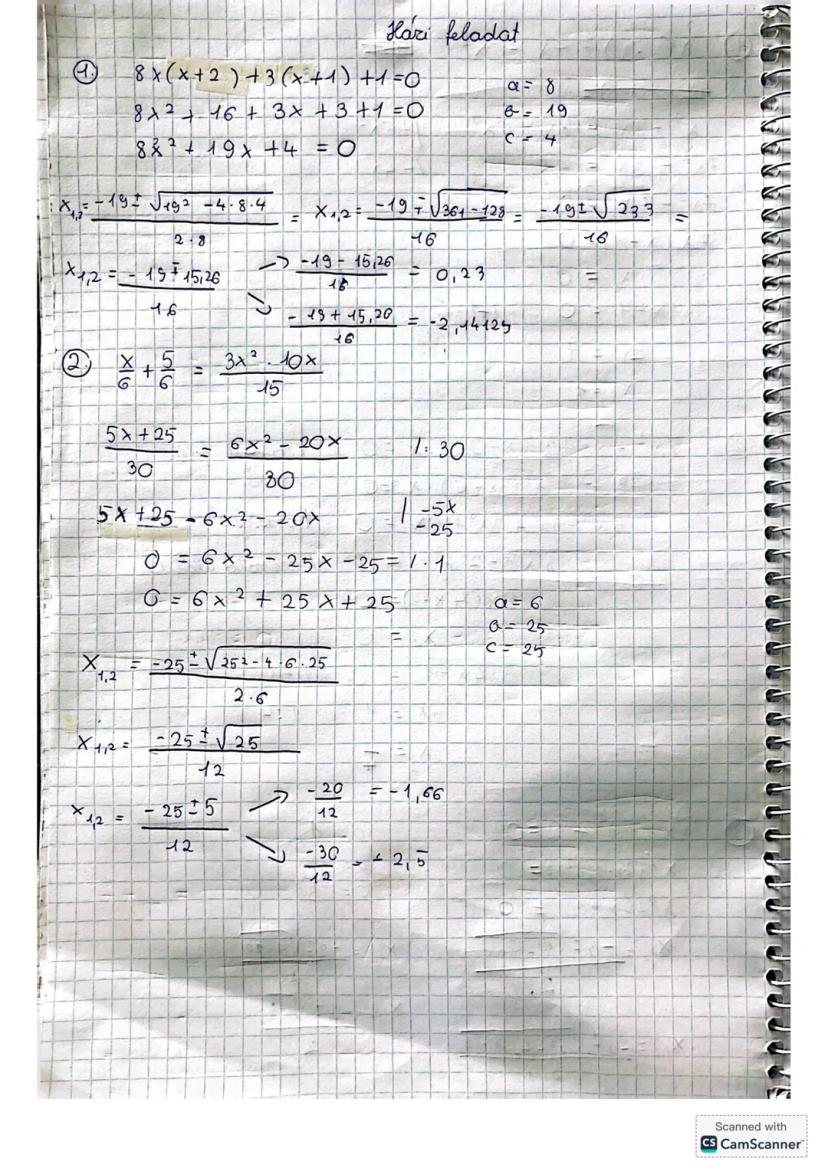 Házi feladat
1. 8x(x+2)+3(x+1)+1=0
a = 8
8x² + 16 + 3x + 3 + 1 = 0
b = 19
8x² + 19x + 4 = 0
c = 4
x1,2 = (-19 ± √(19² - 4·8·4)) / (2·8) = x1,2 = (-19 ∓ √(361 - 128)) / 16 = (-19 ± √233) / 16 =
x1,2 = (-19 ∓ 15,26) / 16 → (-19 - 15,26) / 16 = 0,23 =
↘ (-19 + 15,20) / 16 = -2,14125
2. x/6 + 5/6 = (3x² · 10x) / 15
(5x + 25) / 30 = (6x² - 20x) / 30 /: 30
5x + 25 - 6x² - 20x | -5x
-25
0 = 6x² - 25x - 25 = / · 1
0 = 6x² + 25x + 25
a = 6
b = 25
c = 25
x1,2 = (-25 ± √(25² - 4·6·25)) / (2·6)
x1,2 = (-25 ± √25) / 12
x1,2 = (-25 ± 5) / 12 → -20/12 = -1,66
↘ -30/12 = - 2,5
Scanned with
CS CamScanner